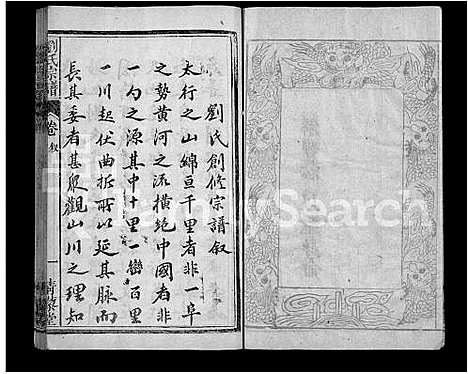 劉氏創修宗譜叙
太行之山綿亘千里者非一阜
之勢黃河之流橫絶中國者非
一勺之源其中十里一巒百里
一川起伏曲折所以延其脉而
長其委者甚衆觀山川之理知
劉氏宗譜
卷
叙
一
FamilySearch